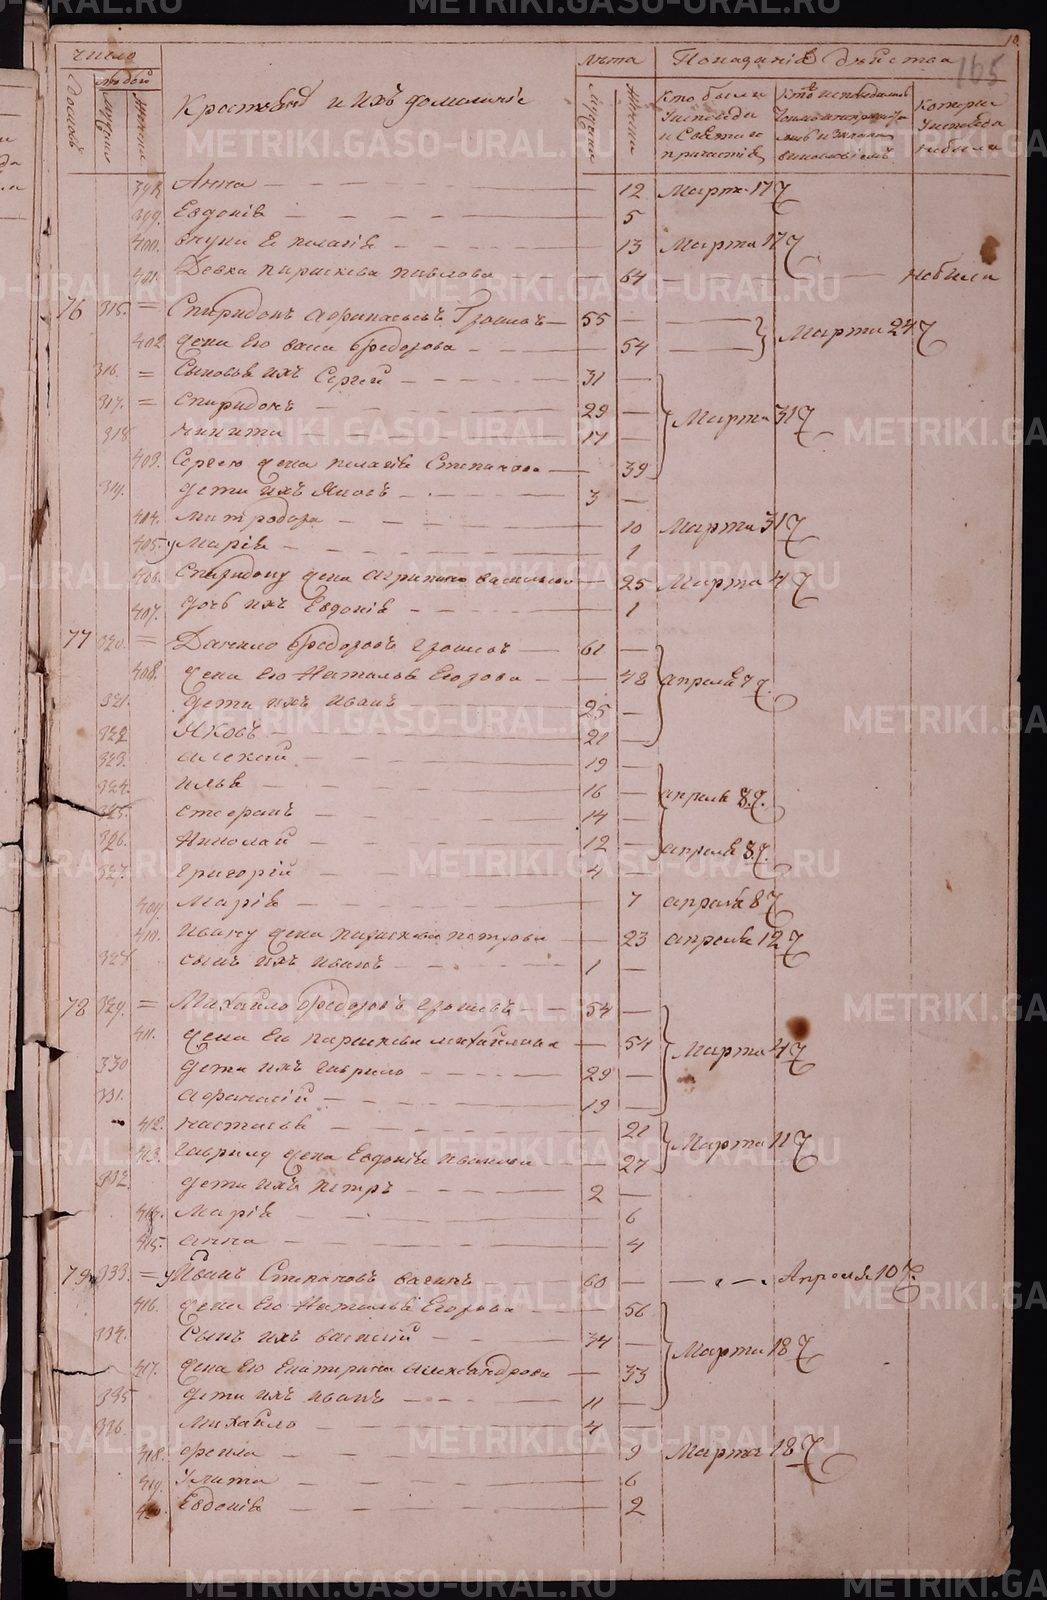 165
число
лѣта
Показаніе дѣйства
домовъ
людей
мужеска
женска
Крестьяне и ихъ домашніе
мужеска
женска
Кто были
у исповеди
и святаго
причастія
которы
у исповеди
небыли
398. Анна 12 Марта 17
399. Евдокія 5
400. внука Ея пелагія 13 Марта 17
401. Девка параскева павлова 64 небыла
76 315. Спиридонъ Афанасьевъ 55
402 жена Его васса Федорова 54 Марта 24
316. Сыновья ихъ Сергей 31
317. Спиридонъ 29 Марта 31
318 никита 17
403. Сергею жена пелагія Степанова 39
319. дети ихъ Яковъ 3
404. митродора 10 Марта 31
405. Марія 1
406. Спиридону жена Агрипина васильева 25 Марта 4
407. дочь ихъ Евдокія 1
77 320. Данило Федоровъ 61
408. жена Его Наталья Егорова 48 апреля 7
321. дети ихъ иванъ 25
322 Яковъ 21
323. алексей 19
324. илья 16 апреля 8
325. стефанъ 14
326. Николай 12 апреля 8
327. григорій 4
409. Марія 7 апреля 8
410. ивану жена параскева петрова 23 апреля 12
328 сынъ ихъ иванъ 1
78 329. Михайло Федоровъ 54
411. жена Его параскева михайлова 54 Марта 4
330 дети ихъ гаврило 29
331. афанасій 19
412. настасья 21 Марта 11
413. гаврилу жена Евдокія иванова 27
332. дети ихъ петръ 2
414. Марія 6
415. анна 4
79 333. Иванъ Степановъ вагинъ 60 Апреля 10
416. жена Его Наталья Егорова 56
334. Сынъ ихъ василій 34 Марта 18
417. жена Его Екатерина Александрова 33
335 дети ихъ иванъ 11
336. михайло 4
418. фекла 9 Марта 18
419. улита 6
420. Евдокія 2
METRIKI.GASO-URAL.RU